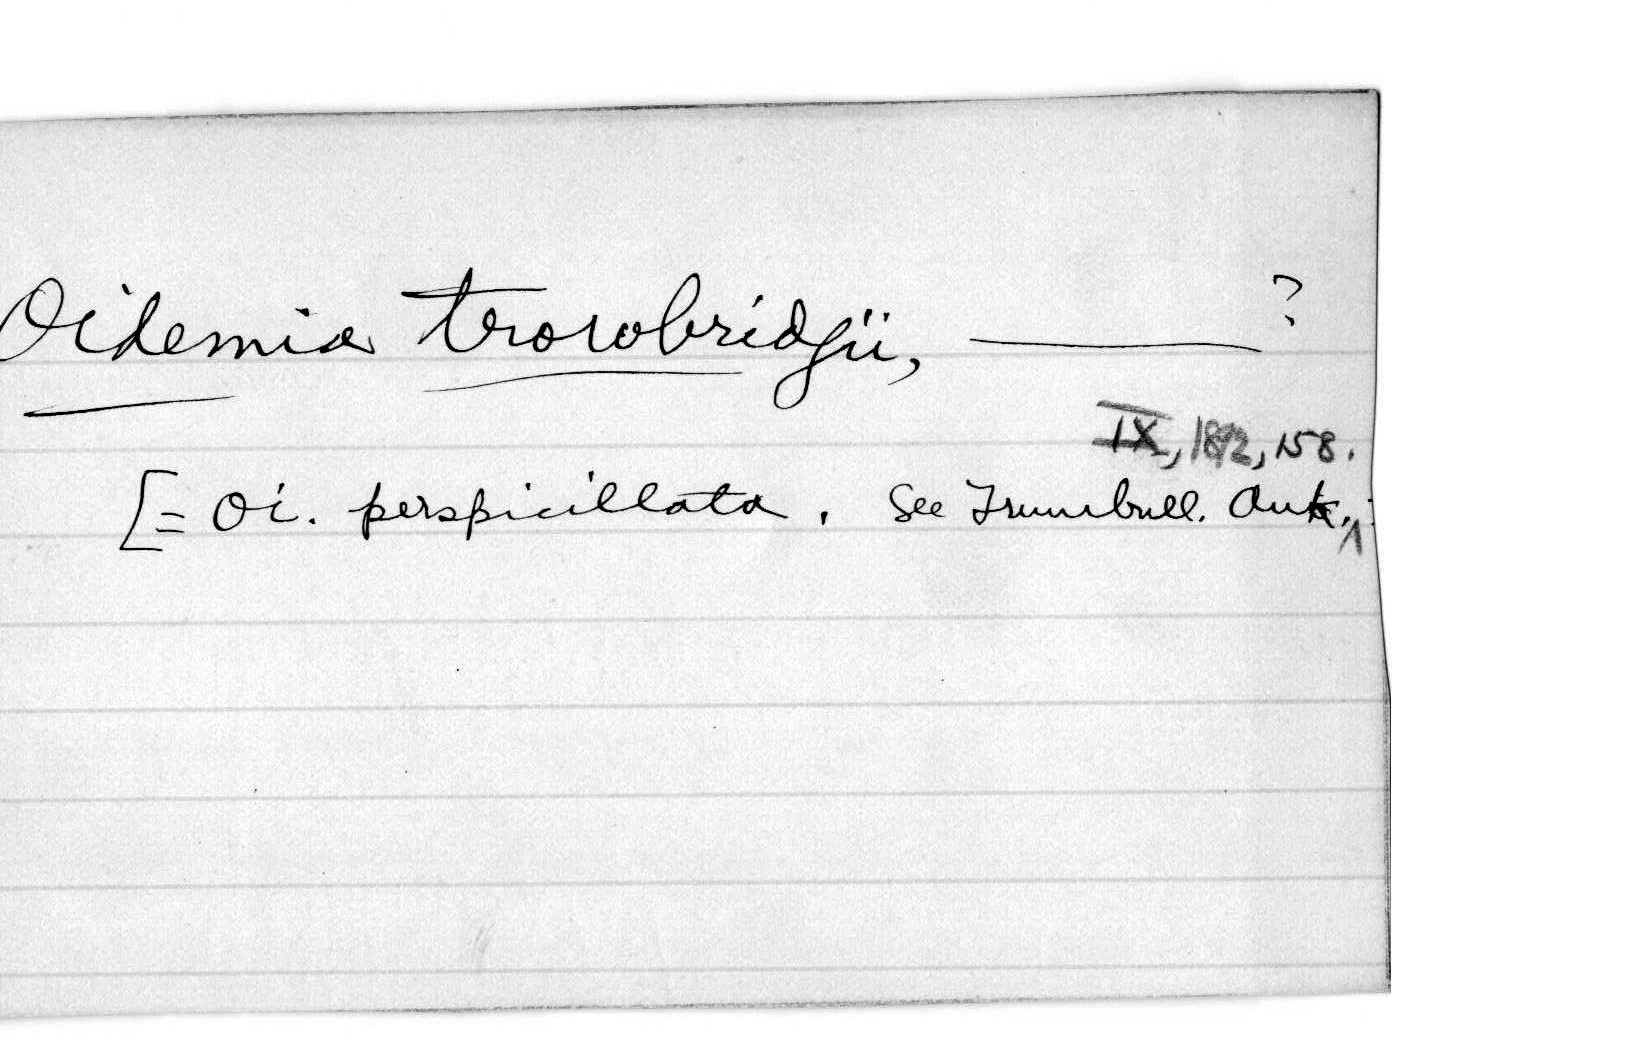 Oidemia trowbridgii, ——— ?
IX, 1892, 158.
[= Oi. perspicillata. See Trumbull. Auk, ^